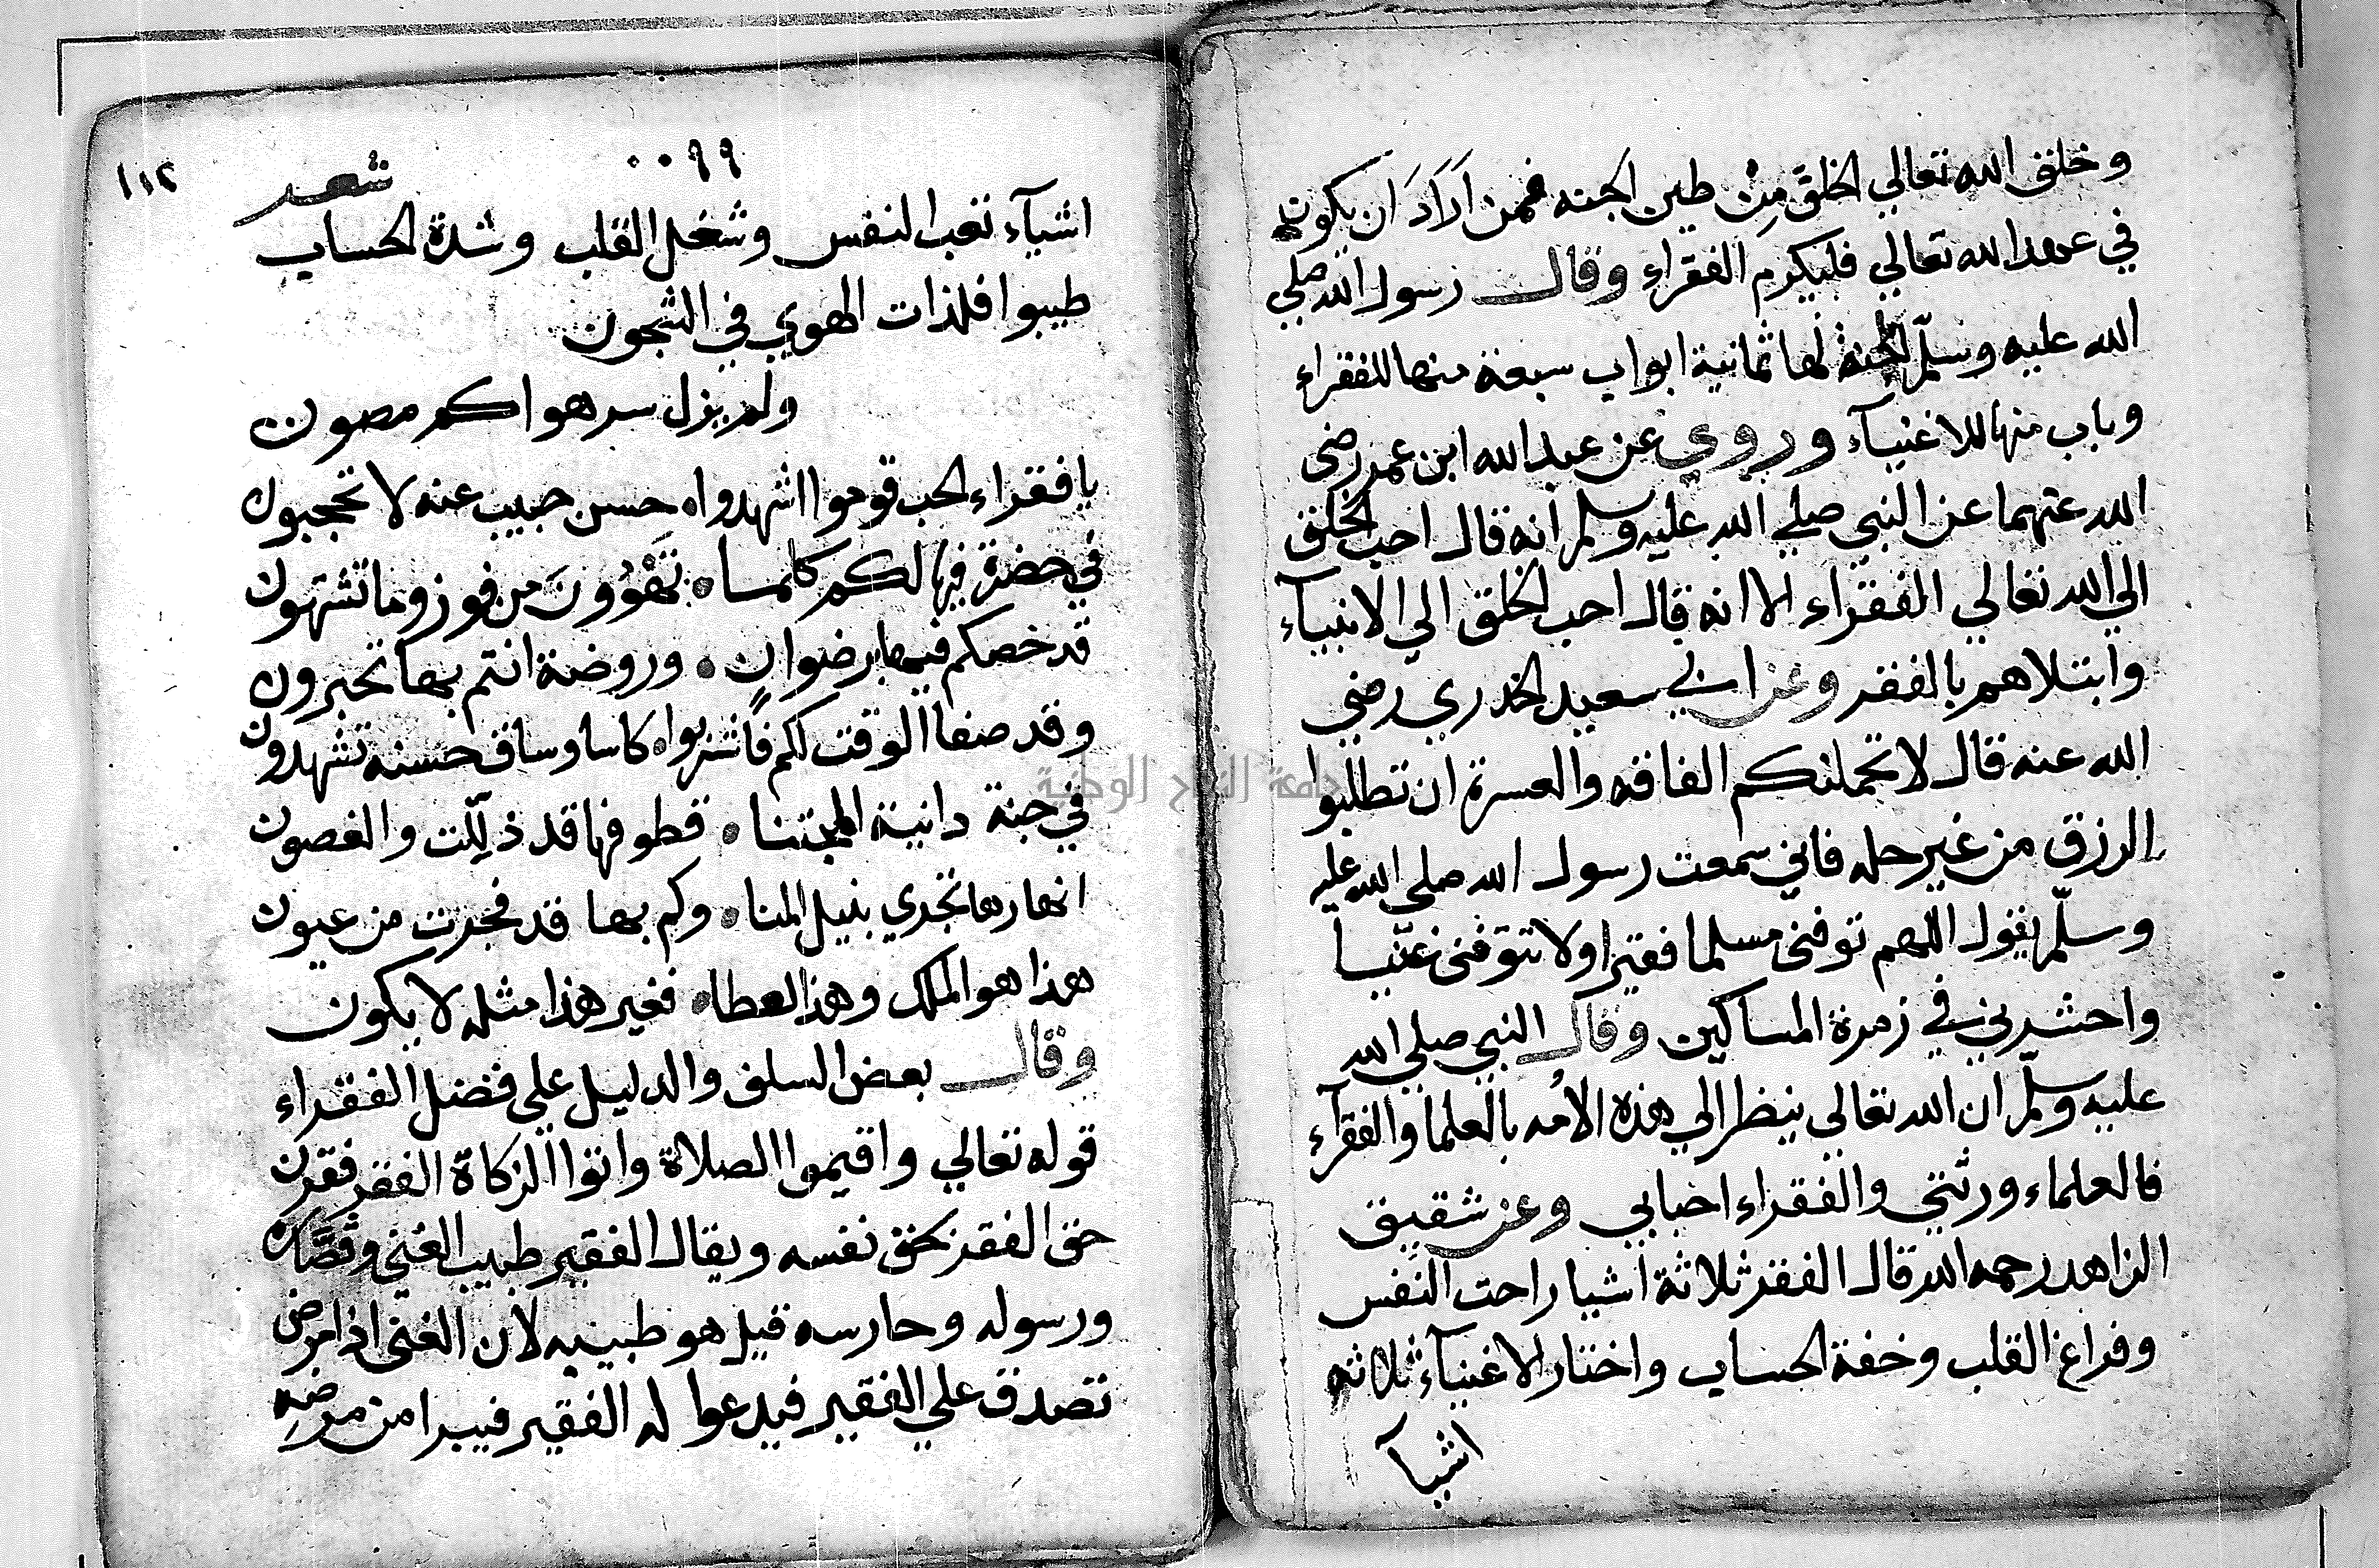 وخلق الله تعالي الخلق من طين الجنه فمن اراد ان يكون
في عهد الله تعالي فليكرم الفقراء وقال رسول الله صلي
الله عليه وسلم الجنة لها ثمانية ابواب سبعة منها للفقراء
وباب منها للاغنيآء وروي عن عبد الله ابن عمر رضى
الله عنهما عن النبي صلي الله عليه وسلم انه قال احب الخلق
الي الله تعالي الفقراء لا انه قال احب الخلق الي الانبيآء
وابتلاهم بالفقر وعن ابي سعيد الخدري رضي
الله عنه قال لا تحملنكم الفاقه والعسرة ان تطلبوا
الرزق من غير حله فاني سمعت رسول الله صلي الله عليه
وسلم يقول اللهم توفنى مسلما فقيرا ولا تتوفنى غنيا
واحشرني في زمرة المساكين وقال النبي صلي الله
عليه وسلم ان الله تعالي ينظر الي هذه الامه بالعلما والفقرآء
فالعلماء ورثتي والفقراء احبابي وعن شقيق
الزاهد رحمه الله قال الفقر ثلاثة اشيا راحت النفس
وفراغ القلب وخفة الحساب واختار الاغنيآء ثلاثه
اشيآ
٠٠٦٩
١١٢
شعر
اشيآء تعب النفس وشغل القلب وشدة الحساب
طيبوا فلذات الهوي في الشجون
ولم يزل سر هواكم مصون
يا فقراء الحب قوموا اشهدوا ه حسن حبيب عنه لا تحجبون
في حضرة فيها لكم كلما ه تهوون من فوز وما تشتهون
قد خصكم فيها برضوان ه وروضة انتم بها تحبرون
وقد صفا الوقت لكم فاشربوا ه كاسا وساق حسنه تشهدون
في جنة دانية المجتنا ه قطوفها قد ذللت والغصون
انهارها تجري بنيل المنا ه وكم بها قد فجرت من عيون
هذا هو الملك وهذا لعطا ه فغير هذا مثله لا يكون
وقال بعض السلف والدليل علي فضل الفقراء
قوله تعالي واقيموا الصلاة واتوا الزكاة الفقر فقرن
حق الفقر بحق نفسه ويقال الفقير طبيب الغني وقصاره
ورسوله وحارسه قيل هو طبيبه لان الغنى اذا مرض
تصدق علي الفقير فيدعوا له الفقير فيبرا من مرضه